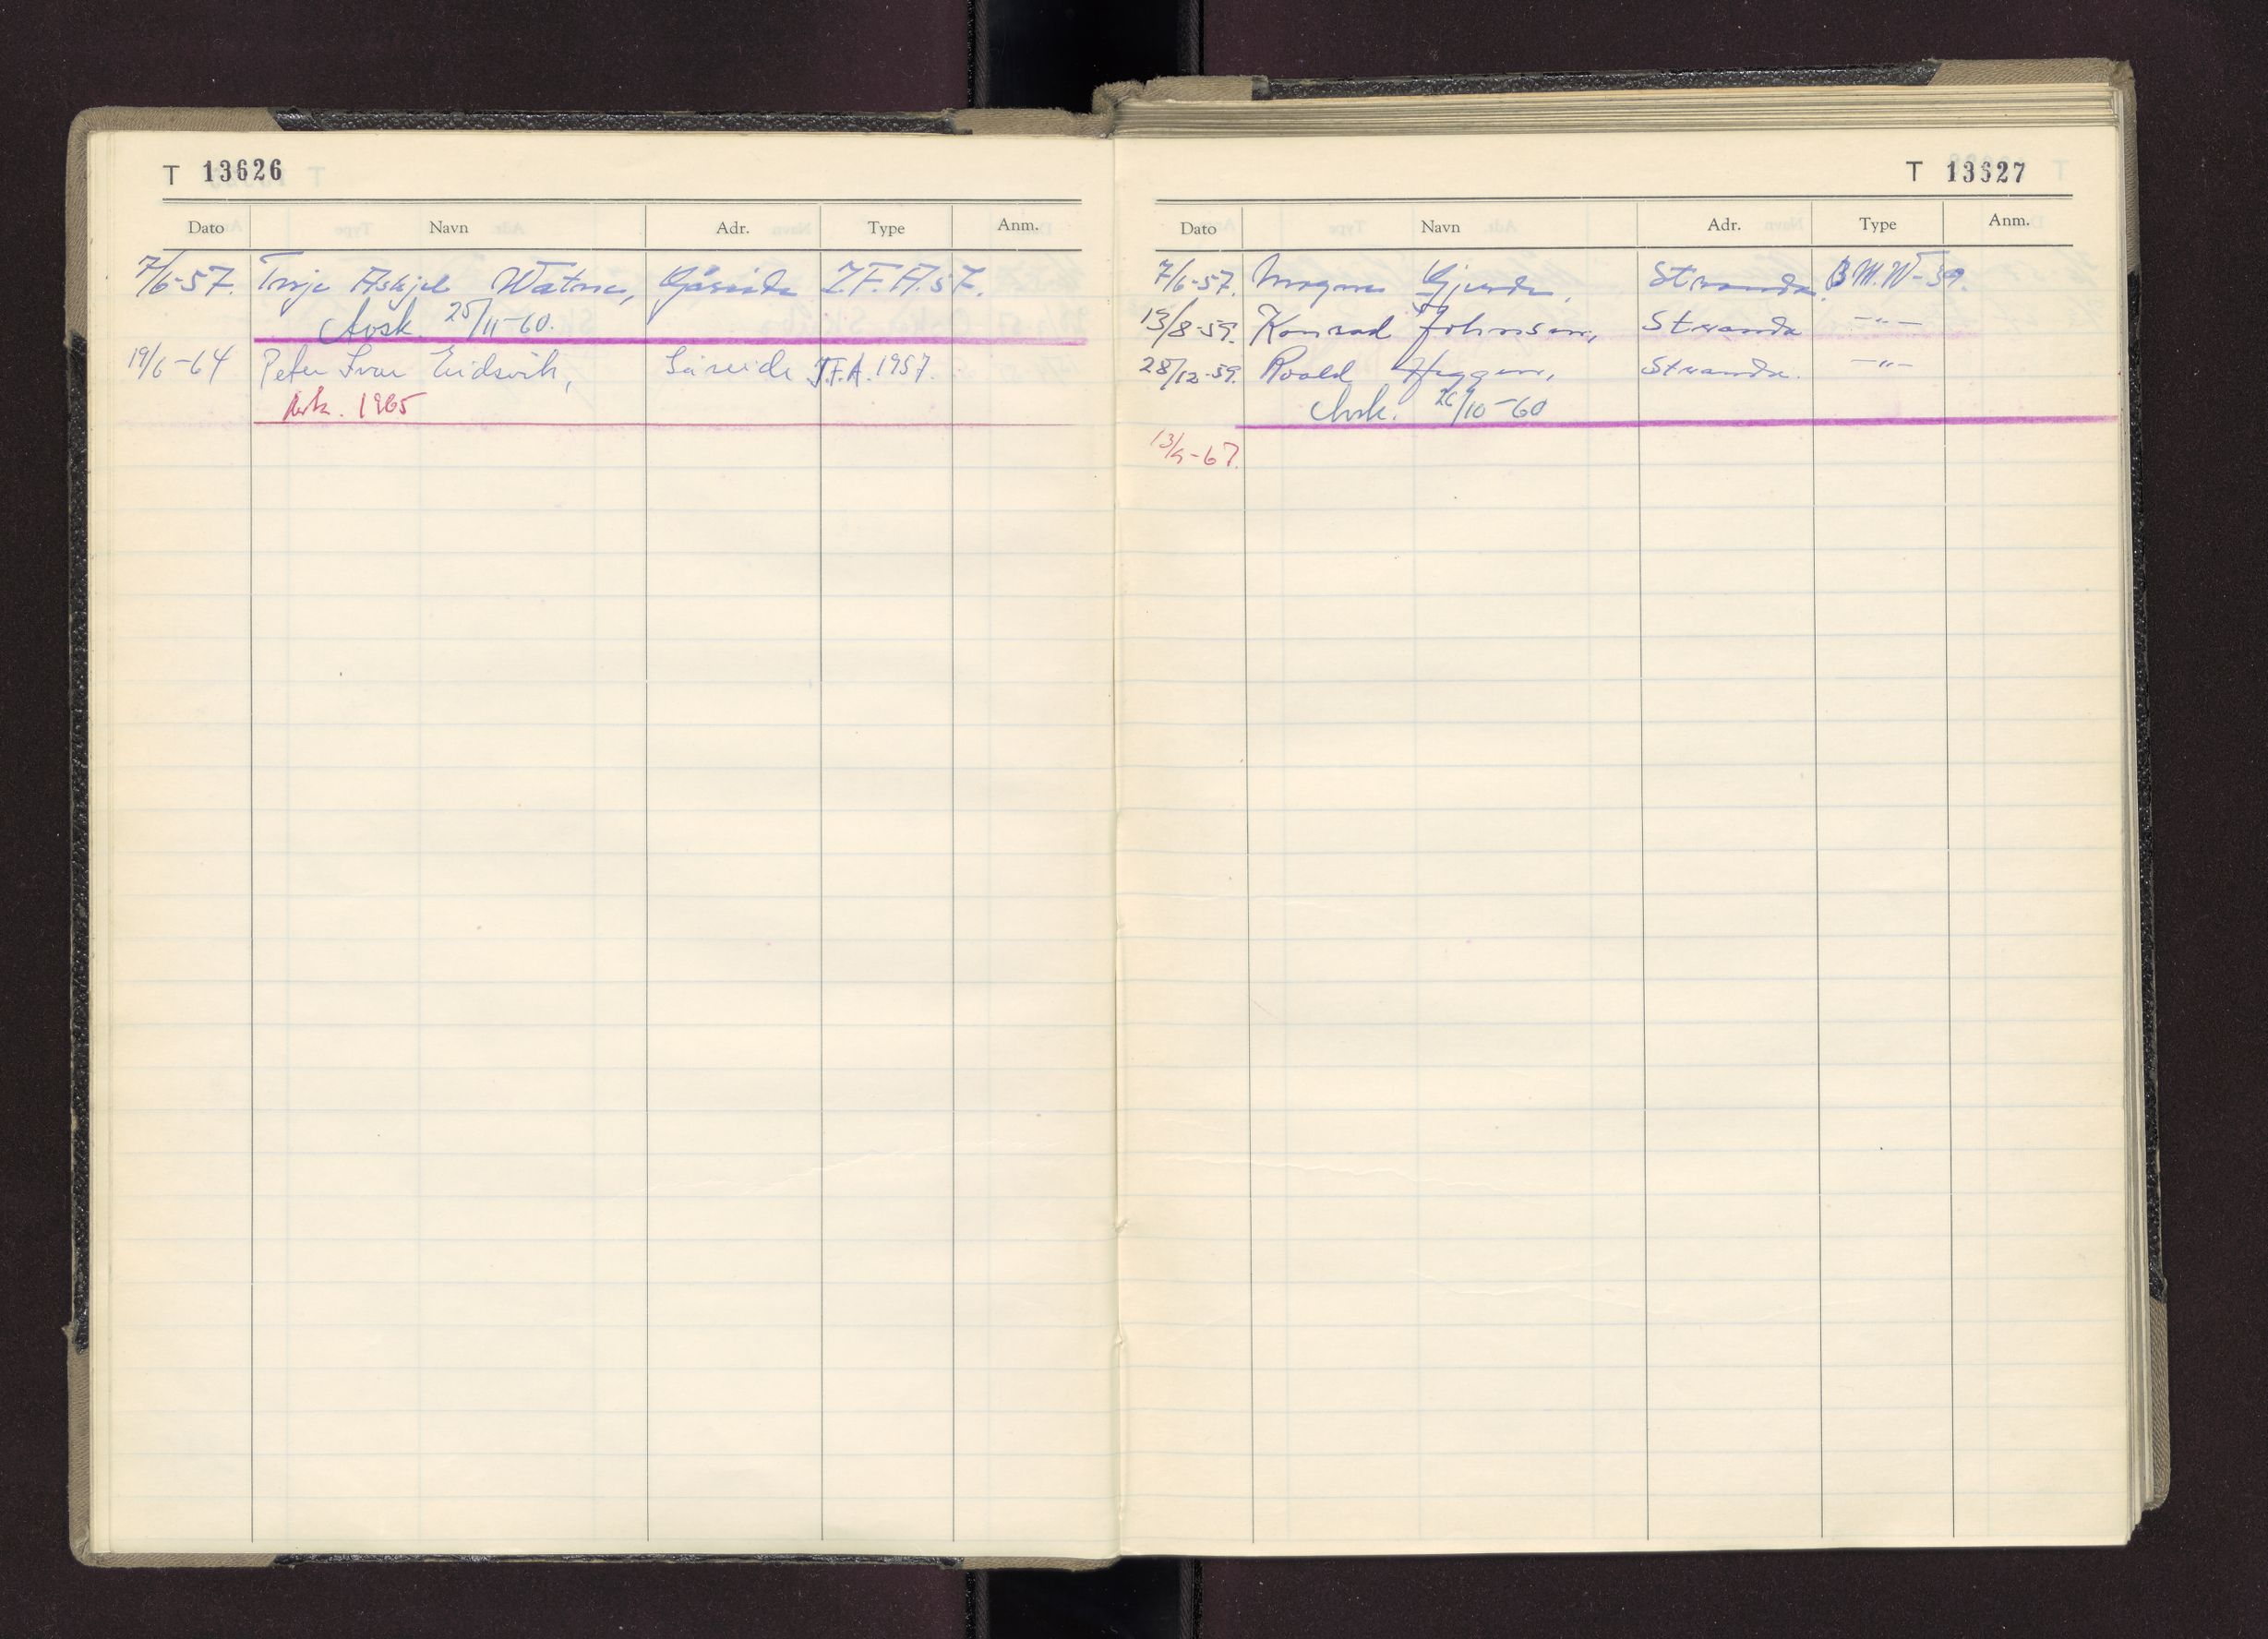 T 13626
Dato Navn Adr. Type Anm.
7/6-57. Terje Askjel Watne, Gåseide I.F.A. 57.
Avsk. 25/11-60.
19/6-64 Peter Ivar Eidsvik, Gåseide I.F.A. 1957.
Avsk. 1965
T 13627
Dato Navn Adr. Type Anm.
7/6-57. Magnus Gjerde, Stranda. B.M.W-39.
13/8-59. Konrad Johnsen, Stranda -"-
28/12-59. Roald Heggen, Stranda. -"-
Avsk. 26/10-60
13/9-67.